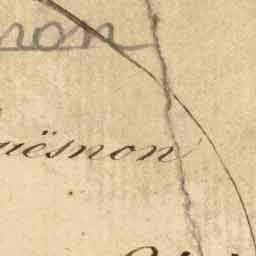 non
uësnon